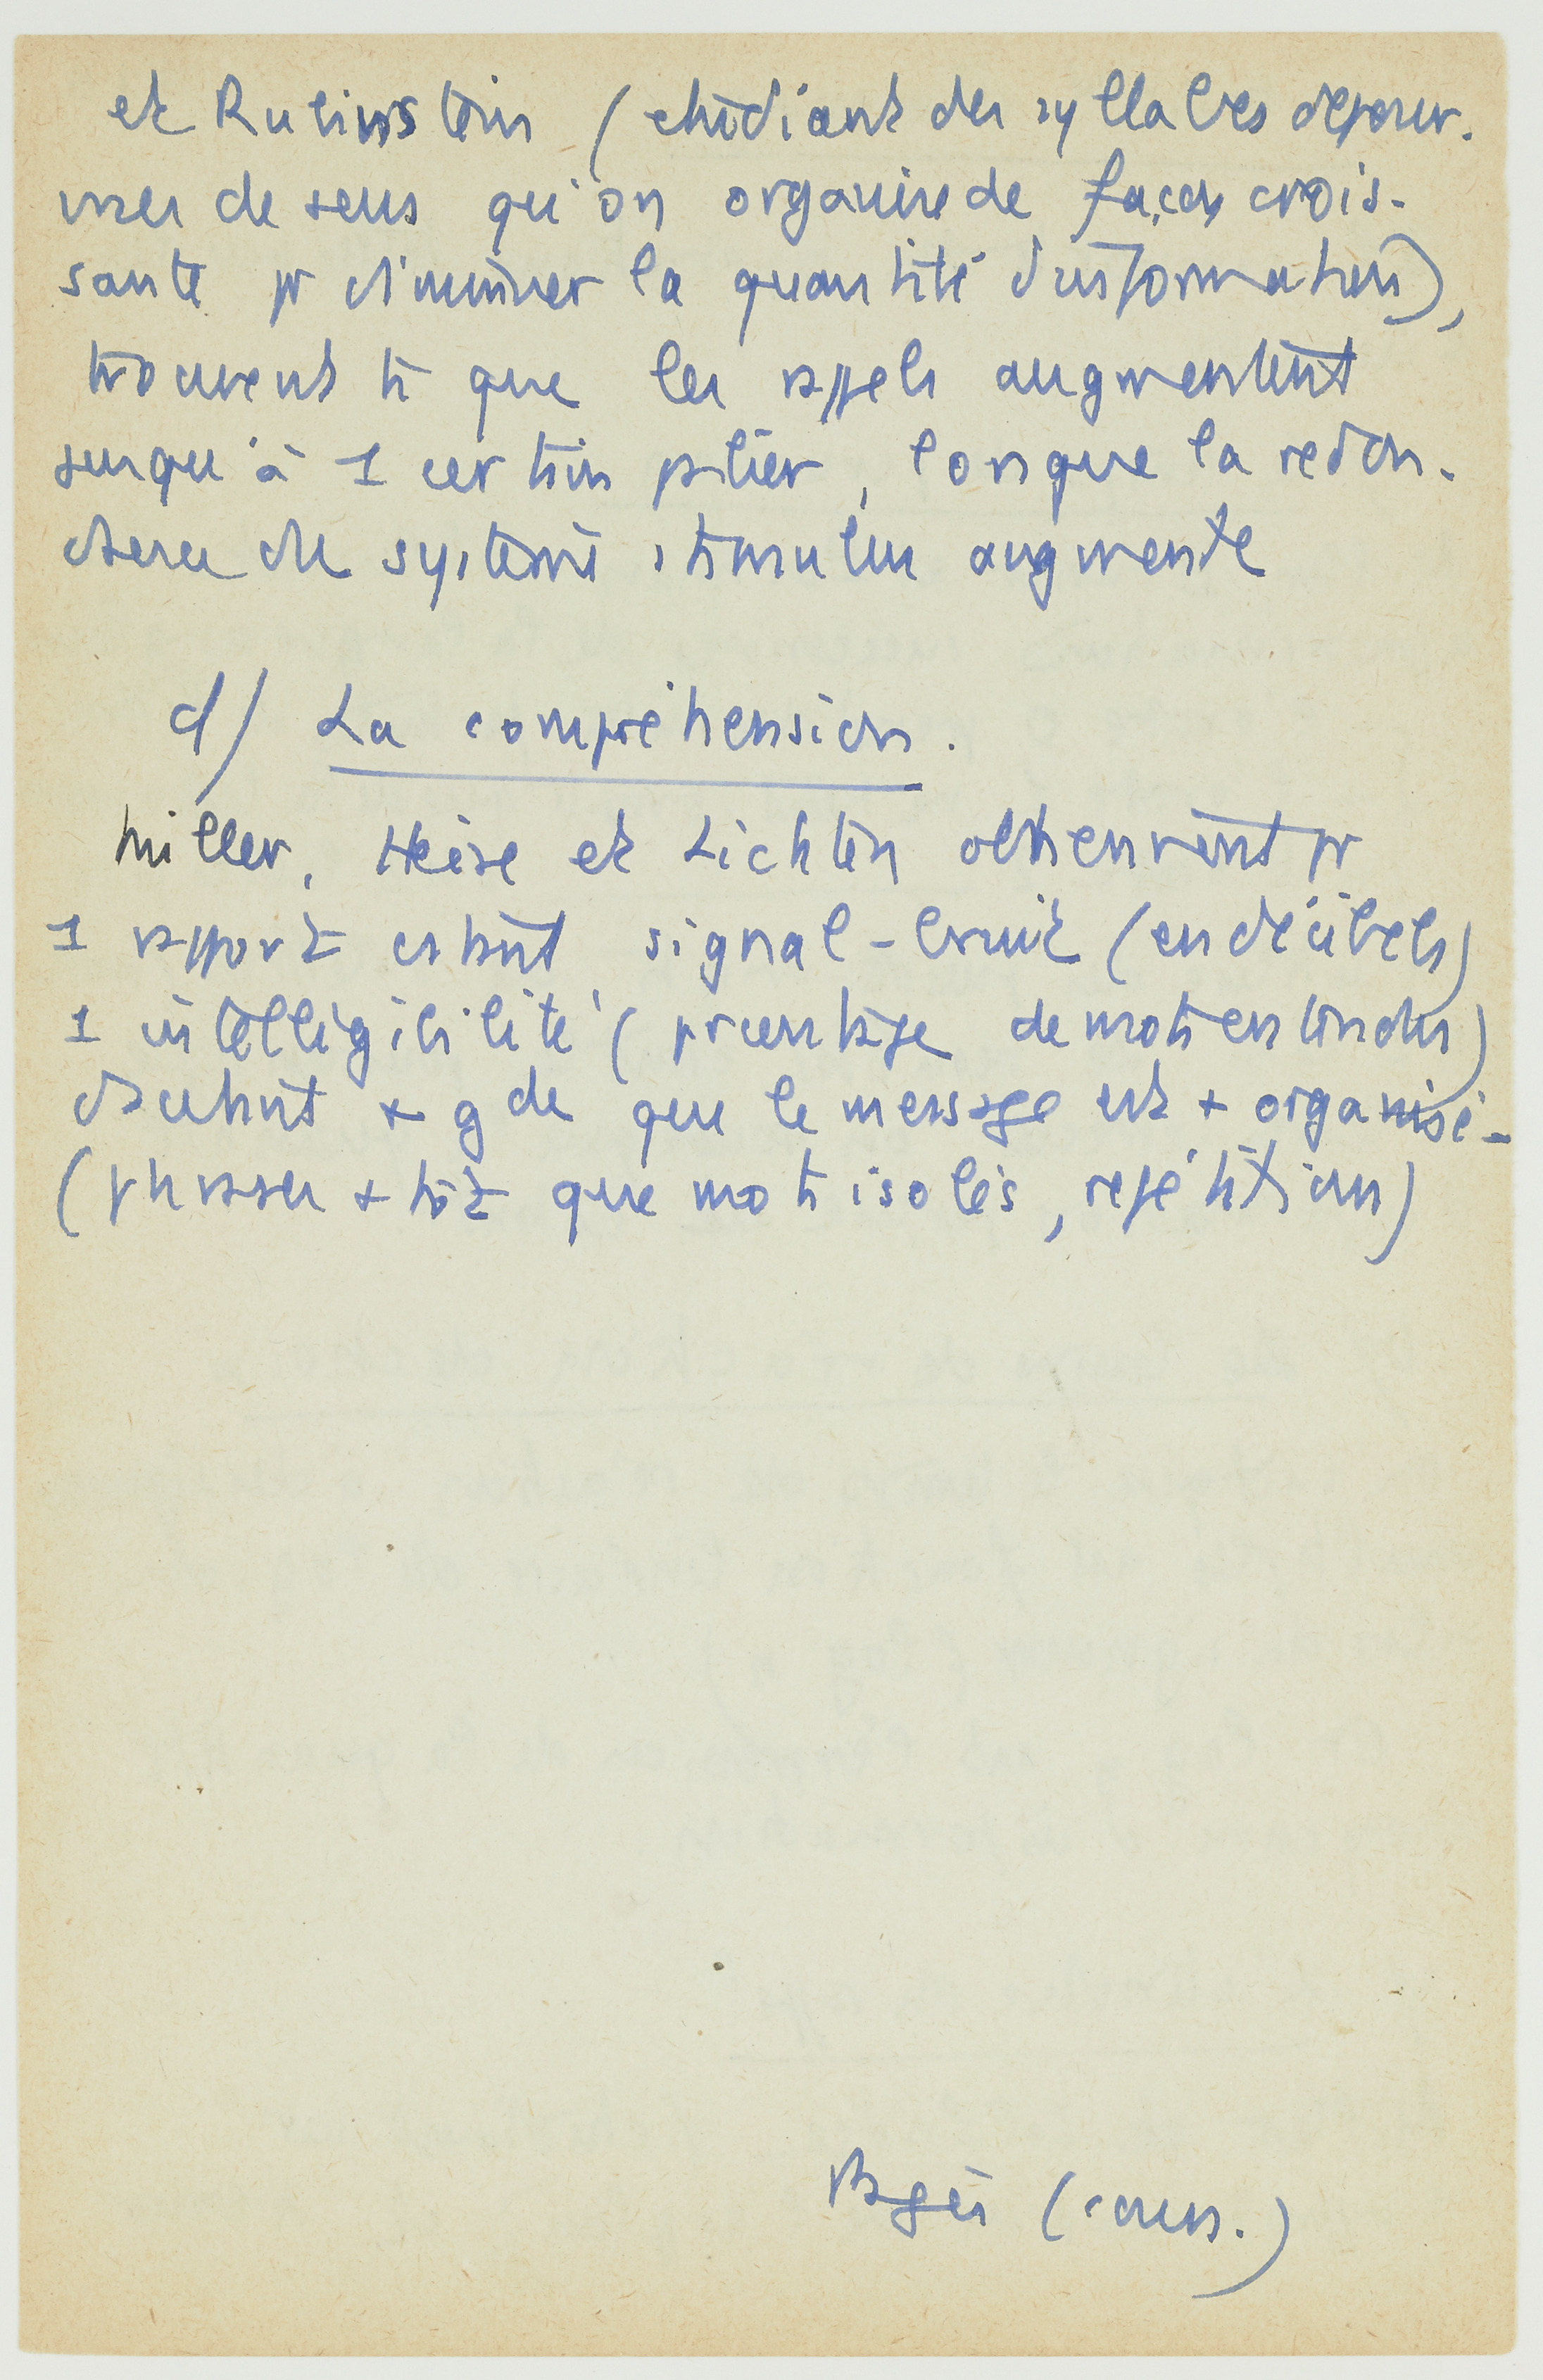 et Rubinstein (étudiant des syllabes dépour-
vues de sens qu'on organise de façon crois-
sante pr diminuer la quantité d'information),
trouvent que les rappels augmentent
jusqu'à 1 certain palier, lorsque la redon-
dance du système stimulus augmente
d/ La compréhension.
Miller, Heise et Lichten obtiennent pr
1 rapport constant signal-bruit (en décibels)
1 intelligibilité (pourcentage de mots entendus)
d'autant + gde que le message est + organisé-
(phrases + tôt que mots isolés, répétition)
Pagès (cours.)